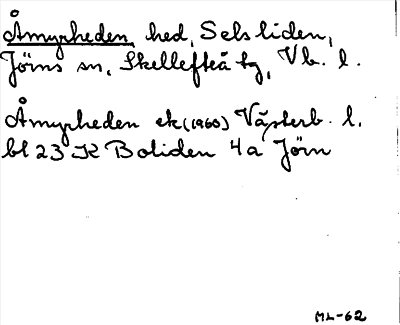 Åmyrheden, hed, Selsliden,
Jörns sn, Skellefteå tg, Vb. l.
Åmyrheden ek (1960) Västerb. l.
bl 23 K Boliden 4a Jörn
ML-62